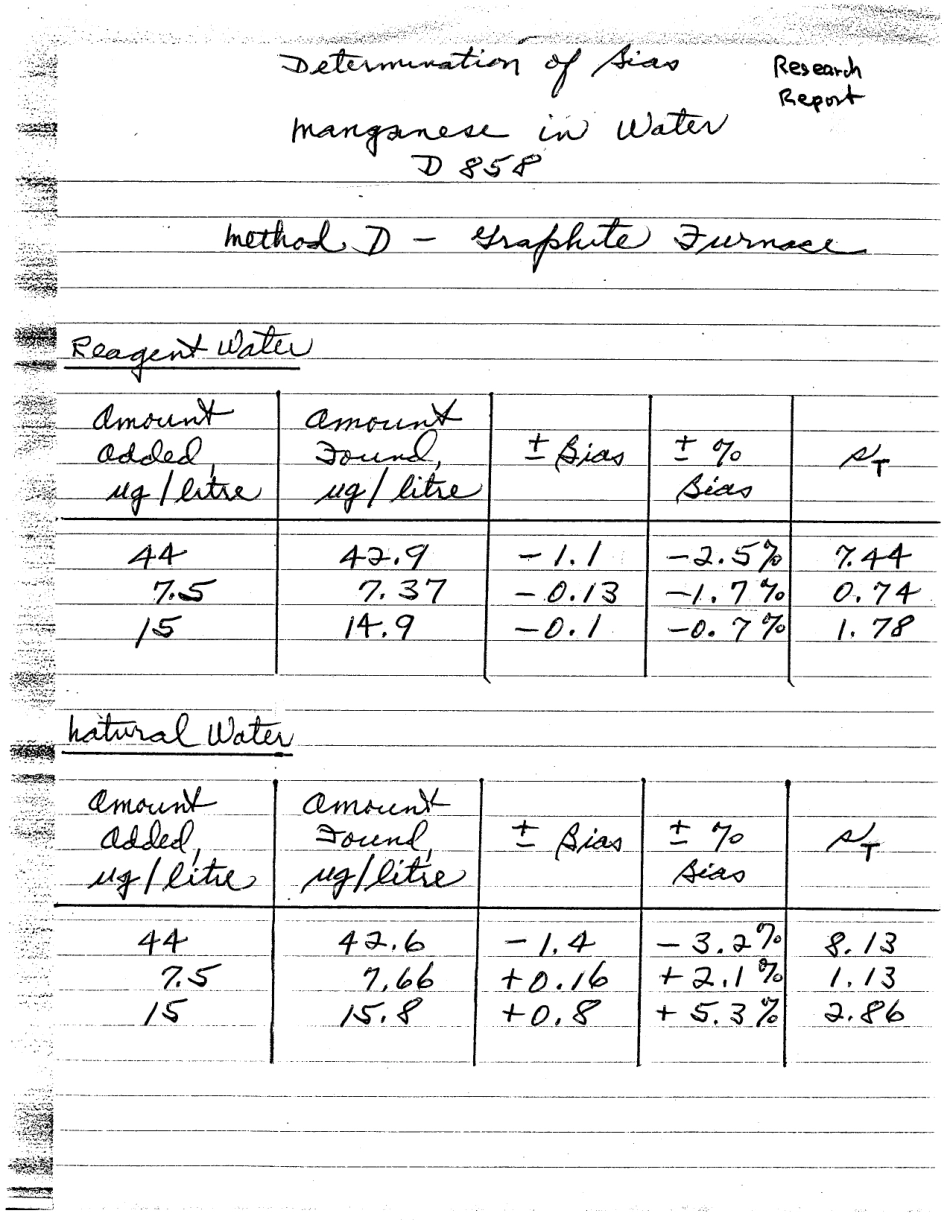 Determination of Bias
Research
Report
Manganese in Water
D 858
Method D - Graphite Furnace
Reagent Water
Amount Added, ug/litre | Amount Found, ug/litre | ± Bias | ± % Bias | sT
44 | 42.9 | -1.1 | -2.5% | 7.44
7.5 | 7.37 | -0.13 | -1.7% | 0.74
15 | 14.9 | -0.1 | -0.7% | 1.78
Natural Water
Amount Added, ug/litre | Amount Found, ug/litre | ± Bias | ± % Bias | sT
44 | 42.6 | -1.4 | -3.2% | 8.13
7.5 | 7.66 | +0.16 | +2.1% | 1.13
15 | 15.8 | +0.8 | +5.3% | 2.86